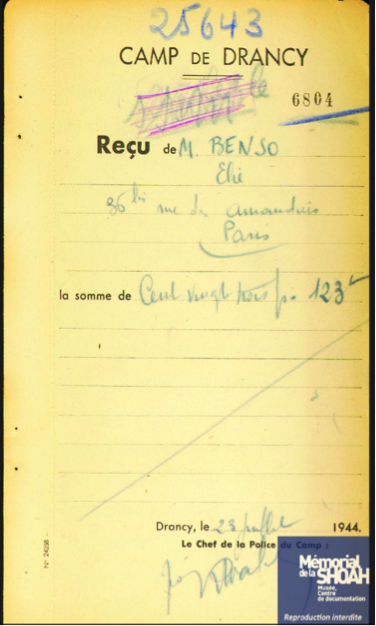 25643
CAMP DE DRANCY
6804
Reçu de M. BENSO
Elie
36 bis rue des amandiers
Paris
la somme de Cent vingt trois f. 123
Drancy, le 23 juillet 1944.
Le Chef de la Police du Camp :
N° 24258
Mémorial
de la SHOAH
Musée,
Centre
de documentation
Reproduction interdite